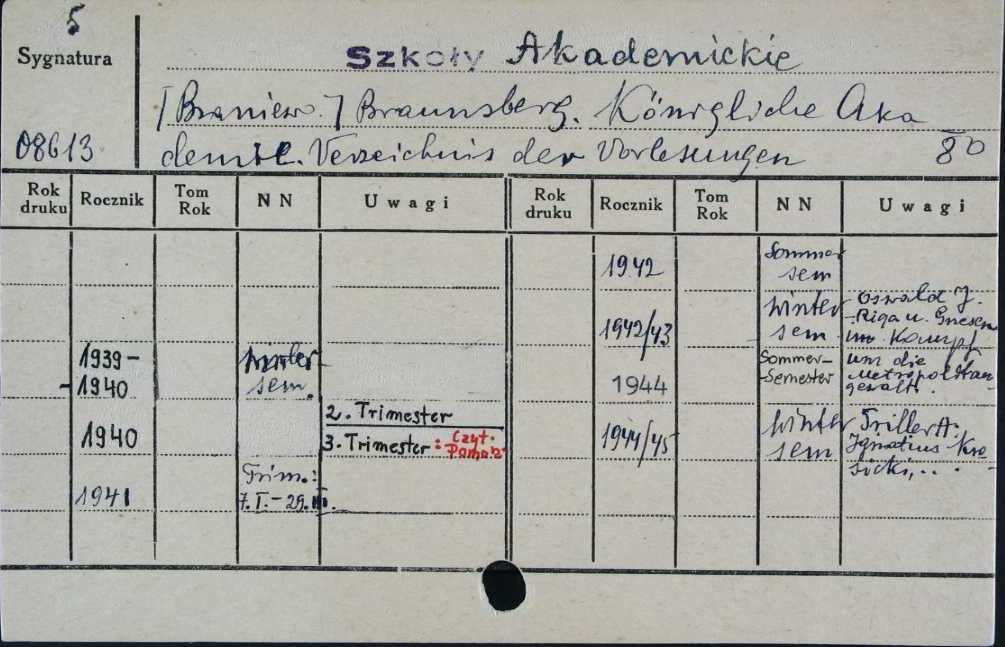 5
Sygnatura
08613
Szkoły Akademickie
[Braniewo.] Braunsberg. Königliche Aka
demie. Verzeichnis der Vorlesungen
8°
Rok druku Rocznik Tom Rok NN Uwagi Rok druku Rocznik Tom Rok NN Uwagi
1939-
-1940
Winter
sem.
2. Trimester
1940
3. Trimester: Czyt.
1941
Trim.:
7.I.-29.III.
1942
Sommer
sem
1942/43
Winter
sem
Oswald J.
Riga u. Gnesen
im Kampf
um die
Metropolitan
gewalt.
1944
Sommer-
Semester
1944/45
Winter
sem
Triller A.
Ignatius Kra
sicki,...